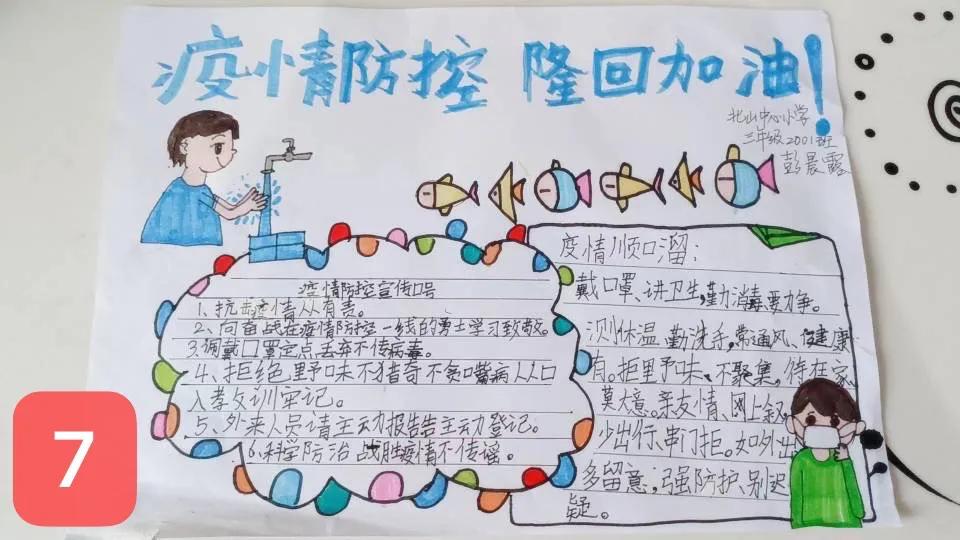 疫情防控 隆回加油!
北山中心小学
三年级2001班
彭晨露
疫情防控宣传口号
1、抗击疫情人人有责。
2、向奋战在疫情防控一线的勇士学习致敬。
3.调戴口罩定点丢弃不传病毒。
4、拒绝野味不猎奇不贪口嘴病从口
入孝女训牢记。
5、外来人员请主动报告告主动登记。
6.科学防治 战胜疫情不传谣。
疫情顺口溜:
戴口罩、讲卫生,勤消毒要力争。
测体温,勤洗手,常通风、保健康
有。拒野味、不聚集,待在家
莫大意。亲友情、网上叙
少出行、串门拒。如外出
多留意,强防护、别迟
疑。
7